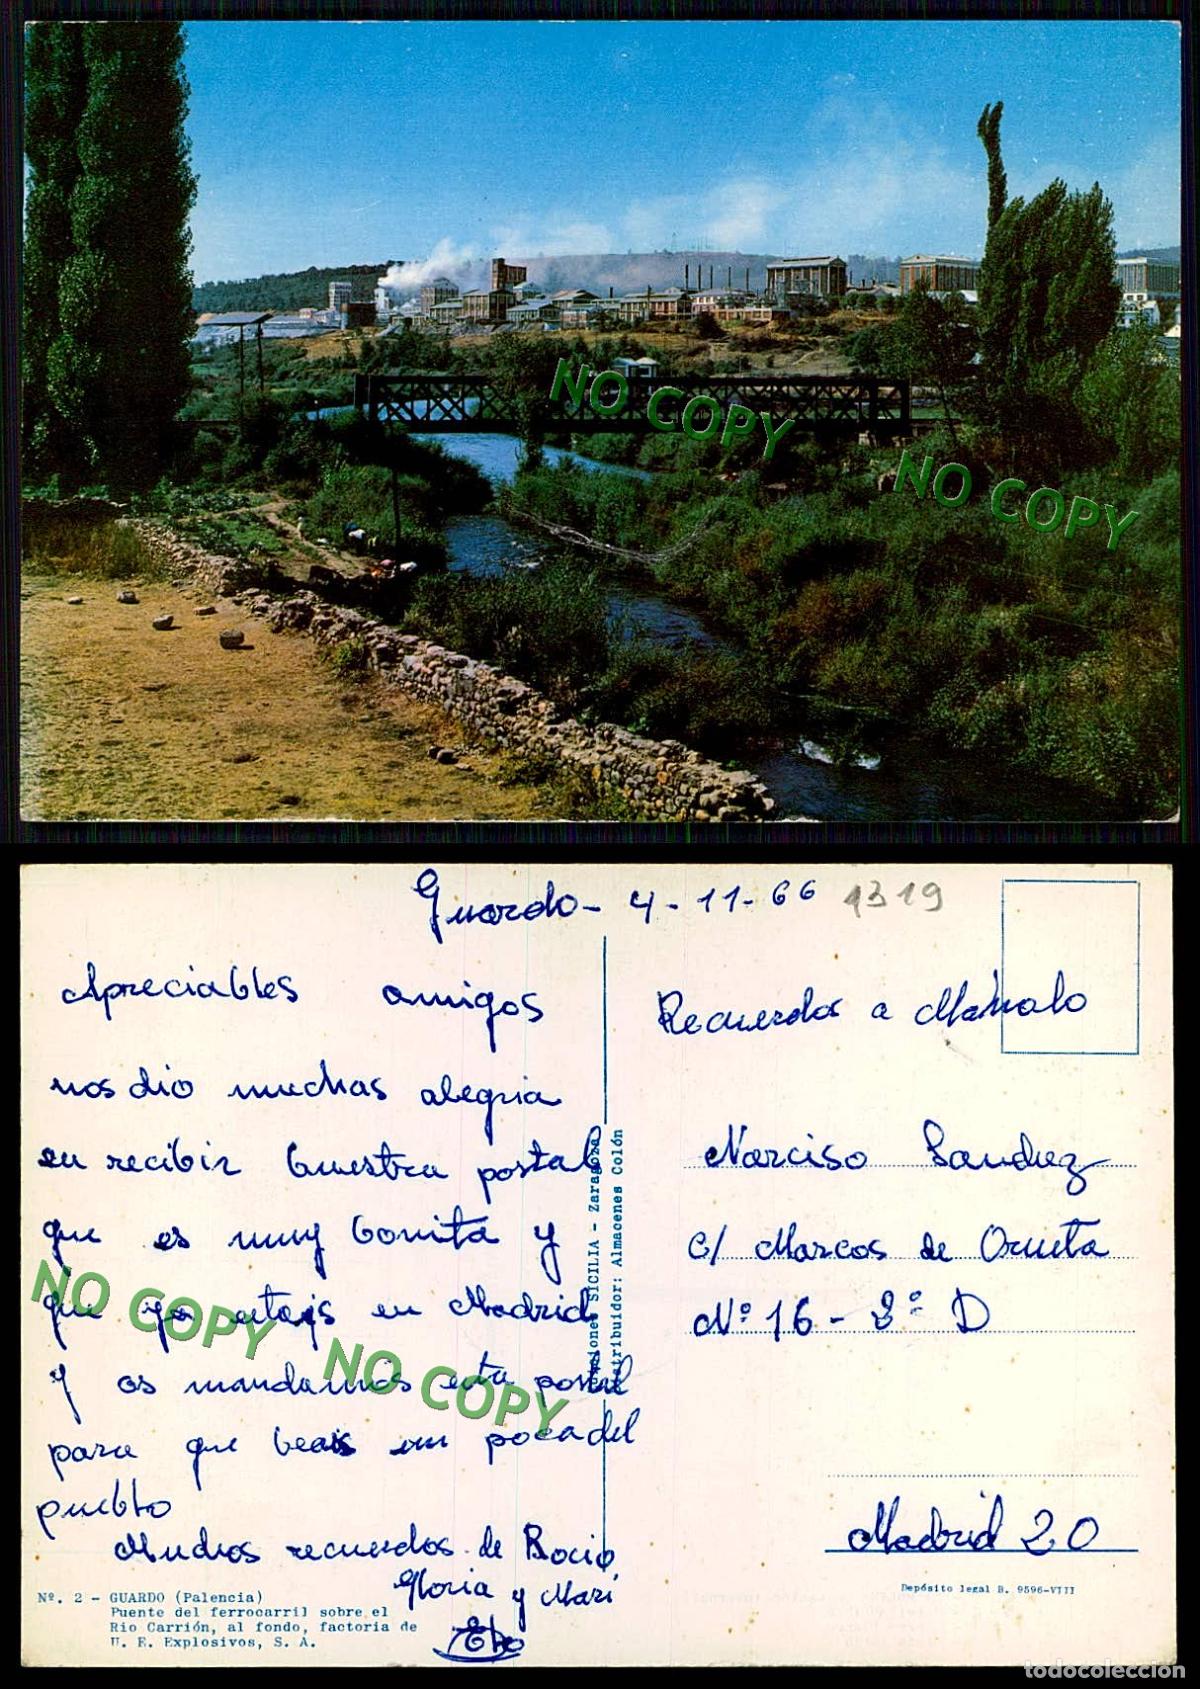 NO COPY
NO COPY
Guardo - 4 - 11 - 66
1319
Apreciables amigos
nos dio muchas alegria
en recibir buestra postal
que es muy bonita y
que ya estais en Madrid
y os mandamos esta postal
para que beais un poca del
pueblo
Muchos recuerdos de Rocio
Gloria y Mari
NO COPY
NO COPY
Nº. 2 - GUARDO (Palencia)
Puente del ferrocarril sobre el
Rio Carrión, al fondo, factoria de
U. E. Explosivos, S. A.
SICILIA - Zaragoza
Distribuidor: Almacenes Colón
Recuerdos a Manolo
Narciso Sanchez
c/ Marcos de Orueta
Nº 16 - 3º D
Madrid 20
Depósito legal B. 9596-VIII
todocoleccion